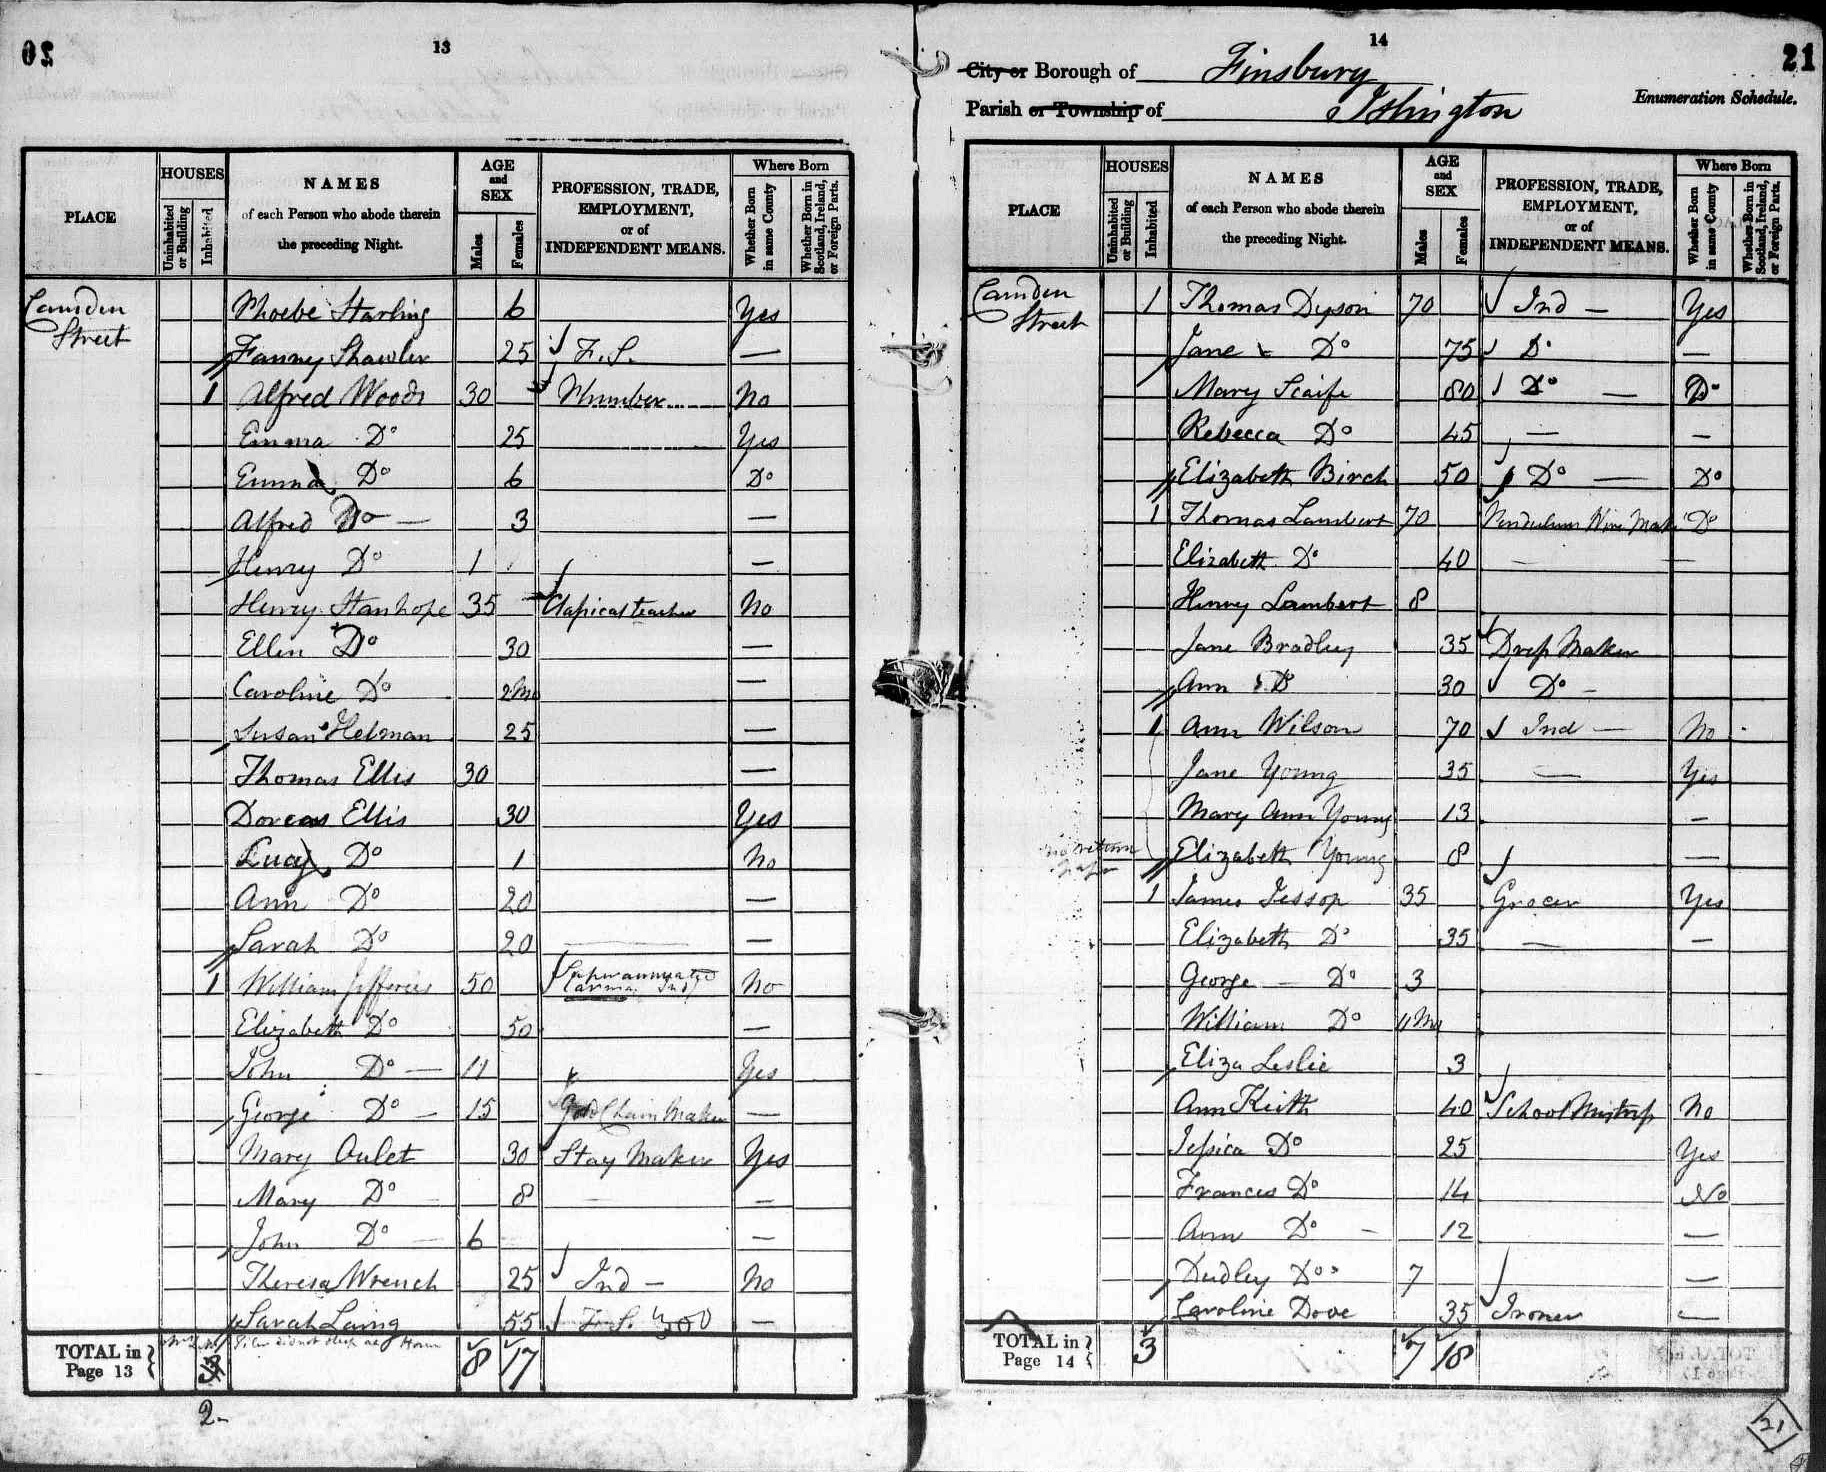 20
13
PLACE
HOUSES
Uninhabited or Building
Inhabited
NAMES
of each Person who abode therein
the preceding Night.
AGE and SEX
Males
Females
PROFESSION, TRADE, EMPLOYMENT, or of INDEPENDENT MEANS.
Where Born
Whether Born in same County
Whether Born in Scotland, Ireland, or Foreign Parts.
Camden Street
Phoebe Starling 6 Yes
Fanny Shawler 25 F.S. —
1 Alfred Woods 30 Plumber No
Emma Do 25 Yes
Emma Do 6 Do
Alfred Do — 3 —
Henry Do 1 —
Henry Stanhope 35 Classical teacher No
Ellen Do 30 —
Caroline Do 2 Mo —
Susan Hebman 25 —
Thomas Ellis 30 —
Dorcas Ellis 30 Yes
Lucy Do 1 No
Ann Do 20 —
Sarah Do 20 —
1 William Jefferies 50 Superannuated No
Elizabeth Do 50 —
John Do — 11 Yes
George Do — 15 Gold Chain Maker —
Mary Oulet 30 Stay Maker Yes
Mary Do — 8 — —
John Do — 6 —
Theresa Wrench 25 Ind — No
Sarah Laing 55 F.S. —
TOTAL in Page 13 3 8 17
2
14
21
City or Borough of Finsbury
Parish or Township of Islington
Enumeration Schedule.
PLACE
HOUSES
Uninhabited or Building
Inhabited
NAMES
of each Person who abode therein
the preceding Night.
AGE and SEX
Males
Females
PROFESSION, TRADE, EMPLOYMENT, or of INDEPENDENT MEANS.
Where Born
Whether Born in same County
Whether Born in Scotland, Ireland, or Foreign Parts.
Camden Street
1 Thomas Dyson 70 Ind — Yes
Jane Do 75 Do —
Mary Scaife 80 Do — Do
Rebecca Do 45 — —
Elizabeth Birch 50 Do — Do
1 Thomas Lambert 70 Pendulum Wire Mak Do
Elizabeth Do 40 — —
Henry Lambert 8
Jane Bradley 35 Dress Maker
Ann Do 30 Do —
1 Ann Wilson 70 Ind — No
Jane Young 35 — Yes
Mary Ann Young 13 —
no return
Elizabeth Young 8 —
1 James Jessop 35 Grocer Yes
Elizabeth Do 35 — —
George — Do 3
William Do 11 Mo
Eliza Leslie 3
Ann Keith 40 School Mistress No
Jessica Do 25 Yes
Frances Do 14 No
Ann Do — 12 —
Dudley Do 7 —
Caroline Dove 35 Ironer —
TOTAL in Page 14 3 7 18
21